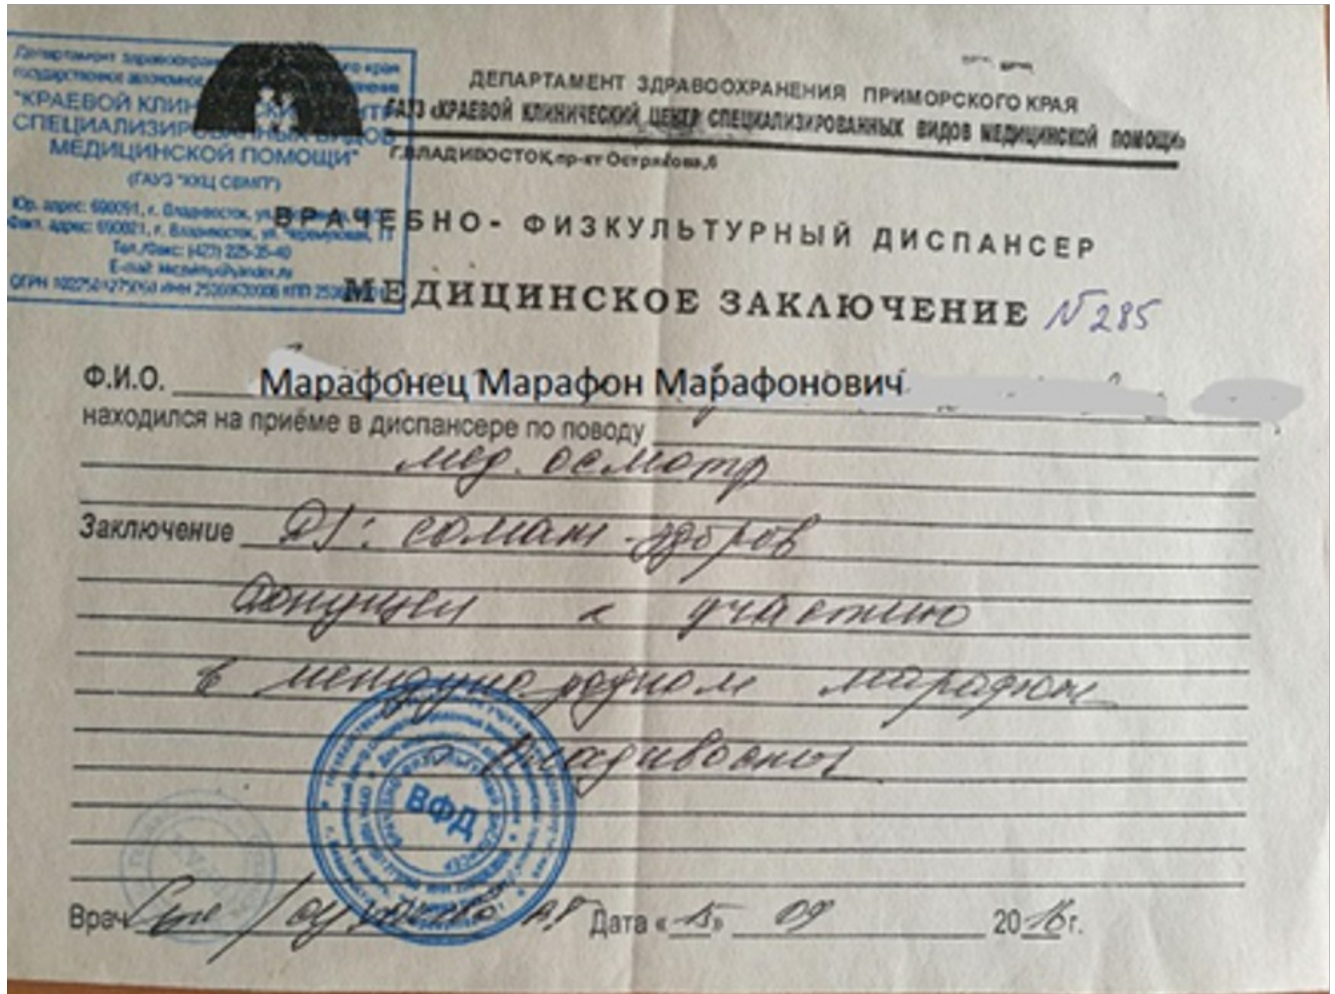 Департамент здравоохранения Приморского края
государственное автономное учреждение здравоохранения
"КРАЕВОЙ КЛИНИЧЕСКИЙ ЦЕНТР
СПЕЦИАЛИЗИРОВАННЫХ ВИДОВ
МЕДИЦИНСКОЙ ПОМОЩИ"
(ГАУЗ "ККЦ СВМП")
Юр. адрес: 690091, г. Владивосток, ул.
Факт. адрес: 690021, г. Владивосток, ул. Черемуховая, 11
Тел./Факс: (423) 225-35-40
E-mail:
ОГРН ИНН КПП
ДЕПАРТАМЕНТ ЗДРАВООХРАНЕНИЯ ПРИМОРСКОГО КРАЯ
ГАУЗ «КРАЕВОЙ КЛИНИЧЕСКИЙ ЦЕНТР СПЕЦИАЛИЗИРОВАННЫХ ВИДОВ МЕДИЦИНСКОЙ ПОМОЩИ»
Г.ВЛАДИВОСТОК, пр-кт Острякова,6
ВРАЧЕБНО- ФИЗКУЛЬТУРНЫЙ ДИСПАНСЕР
МЕДИЦИНСКОЕ ЗАКЛЮЧЕНИЕ N 285
Ф.И.О. Марафонец Марафон Марафонович
находился на приёме в диспансере по поводу
мед. осмотр
Заключение DS: сомат. здоров
Допущен к участию
в международном марафоне
Владивосток
ВФД
Врач Дата «15» 09 2016г.